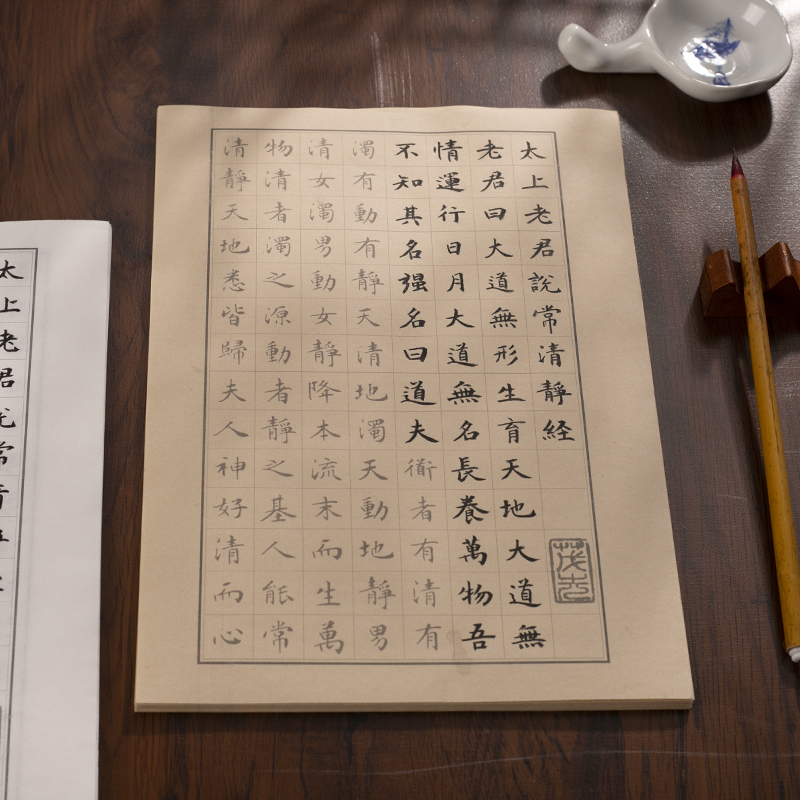 太上老君説常清靜経
老君曰大道無形生育天地大道無
情運行日月大道無名長養萬物吾
不知其名强名曰道夫
者有清有
濁有動有靜天清地濁天動地靜男
清女濁男動女靜降本流末而生萬
物清者濁之源動者靜之基人能常
清靜天地悉皆歸夫人神好清而心
太上老君